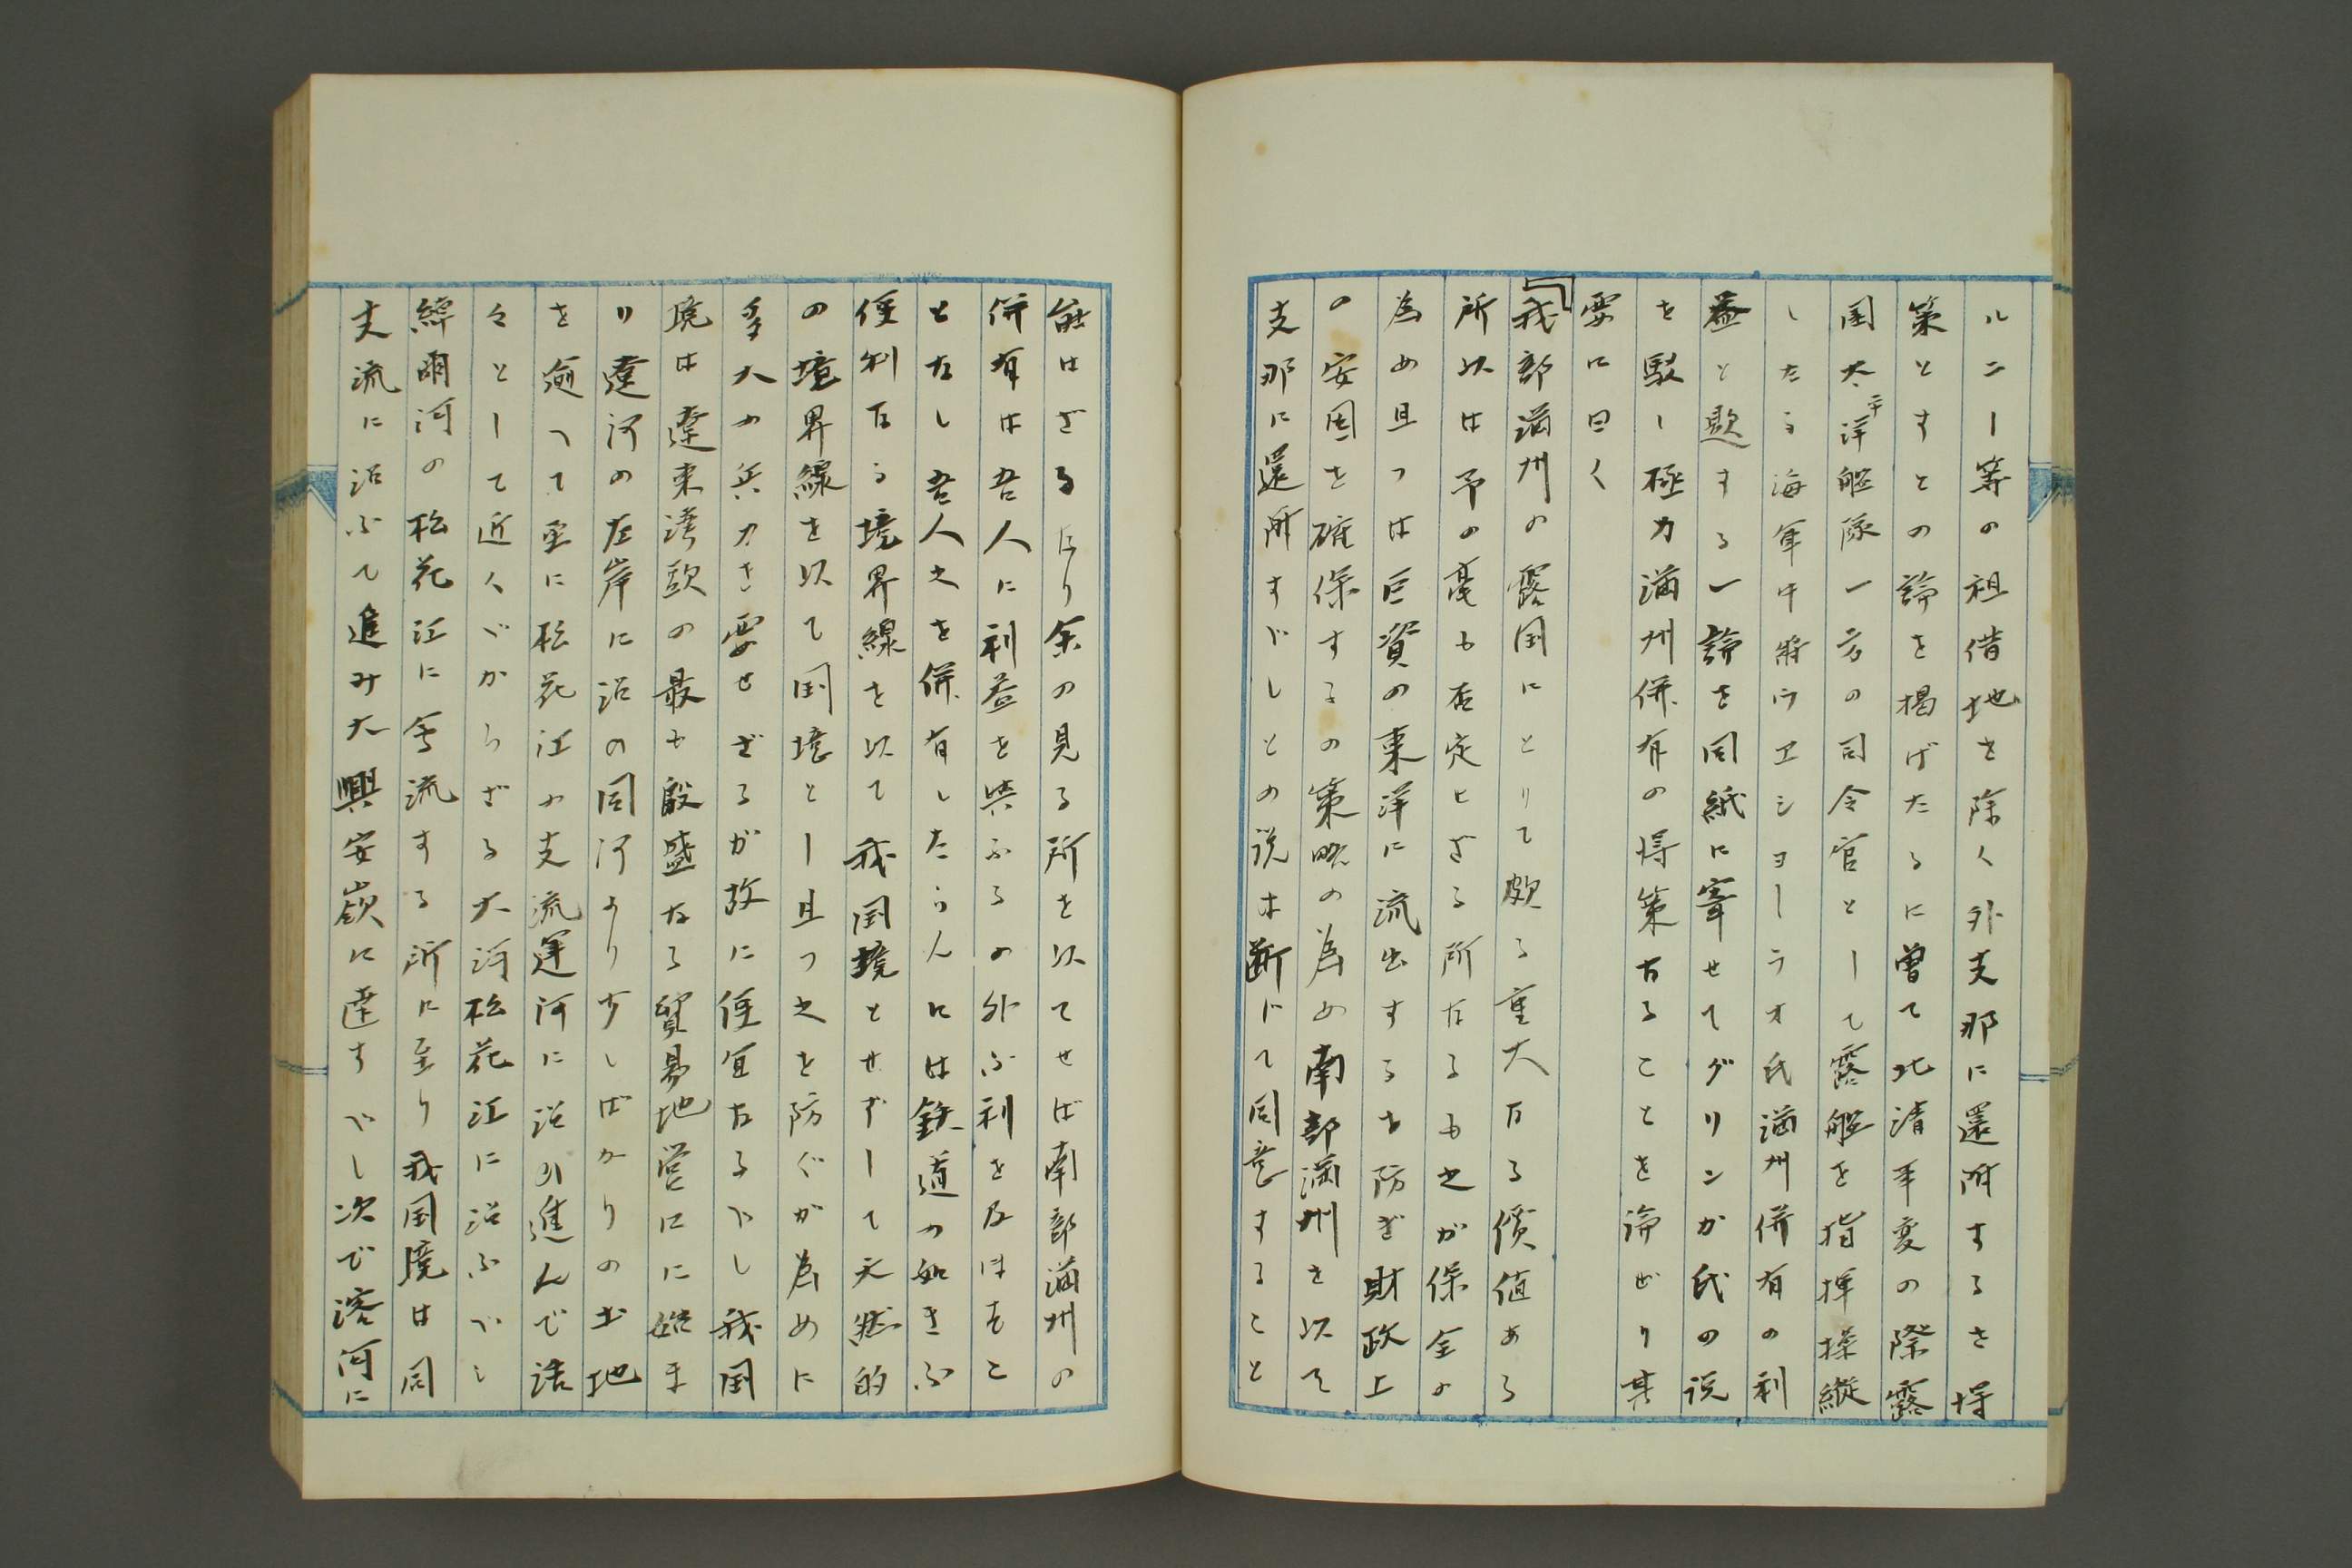 ルニー等の祖借地を除く外支那に還附するを得
策とすとの論を掲げたるに曽て北清事変の際露
国太平洋艦隊一方の司令官として露艦を指揮操縦
したる海軍中将ウエショーラオ氏満州併有の利
益と題する一論を同紙に寄せてグリンか氏の説
を駁し極力満州併有の得策なることを論ぜり其
要に曰く
「我部満州の露国にとりて頗る重大なる価値ある
所以は予の毫も否定せざる所なるも之が保全の
為め且つは巨資の東洋に流出するを防ぎ財政上
の安固を確保するの策略の為め南部満州を以て
支那に還附すべしとの説は断じて同意すること
能はざるなり余の見る所を以てせば南部満州の
併有は吾人に利益を与ふるの外不利を及ほすこ
となし吾人之を併有したらんには鉄道の如き不
便利なる境界線を以て我国境とせずして天然的
の境界線を以て国境とし且つ之を防ぐが為めに
多大の兵力を要せざるが故に便宜なるべし我国
境は遼東湾頭の最も殷盛なる貿易地営口に始ま
り遼河の左岸に沿の同河より少しばかりの土地
を逾へて至に松花江の支流運河に沿ひ進んで活
々として近くべからざる大河松花江に沿ふべし
緯爾河の松花江に会流する所に至り我国境は同
支流に沿ふて進み大興安嶺に達すべし次で溶河に